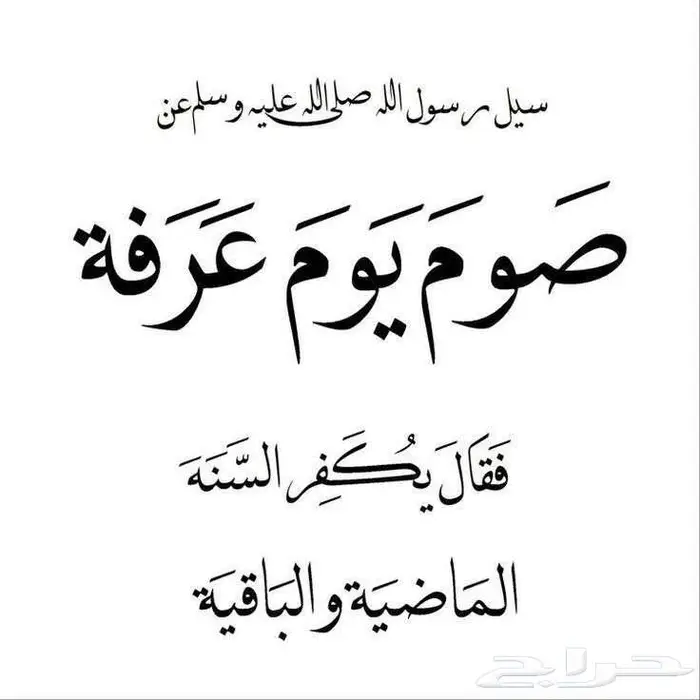 سيل رسول الله صلى الله عليه وسلم عن
صَومَ يَومَ عَرَفة
فَقَالَ يُكَفِر السَّنَهَ
المَاضيَة والبَاقيَة
حراج